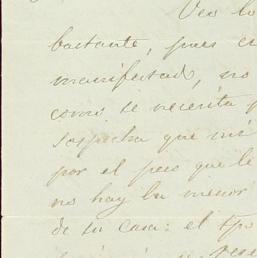 Veo lo
bastante, pues en
manifestado, no
como se necesita p
sospecha que mi
por el peso que le
no hay la menor
de su casa: el tpo